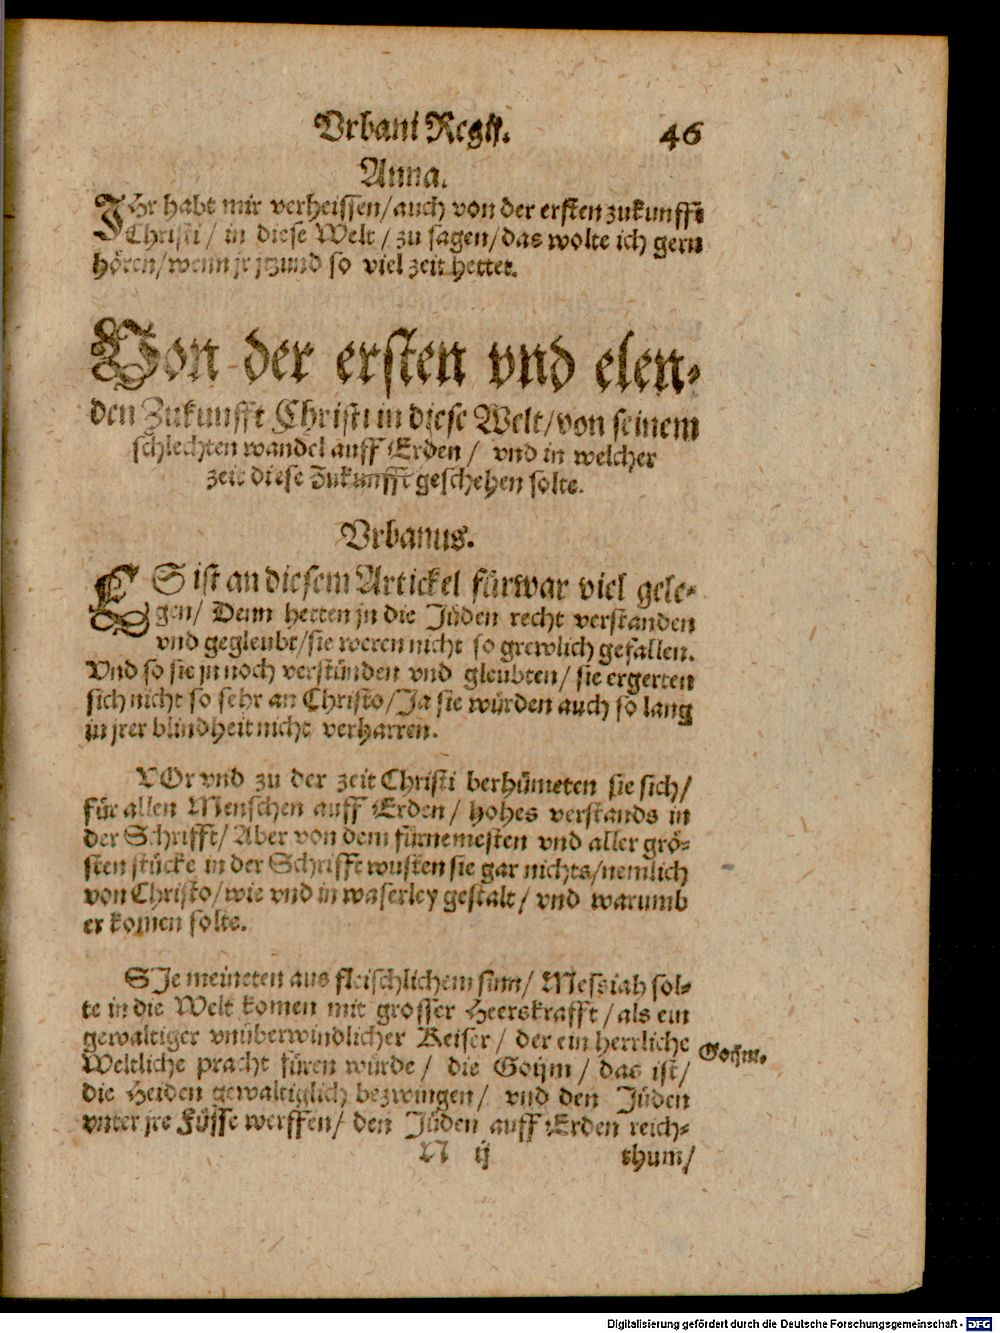 Vrbani Regij. 46
Anna.
IHr habt mir verheissen/auch von der ersten zukunfft
Christi / in diese Welt / zu sagen/das wolte ich gern
hören/wenn jr jtzund so viel zeit hettet.
Von der ersten vnd elen-
den Zukunfft Christi in diese Welt/von seinem
schlechten wandel auff Erden / vnd in welcher
zeit diese Zukunfft geschehen solte.
Vrbanus.
ES ist an diesem Artickel fürwar viel gele-
gen/ Denn hetten jn die Jüden recht verstanden
vnd gegleubt/sie weren nicht so grewlich gefallen.
Vnd so sie jn noch verstünden vnd gleubten/ sie ergerten
sich nicht so sehr an Christo/Ja sie würden auch so lang
in jrer blindheit nicht verharren.
VOr vnd zu der zeit Christi berhümeten sie sich/
für allen Menschen auff Erden/ hohes verstands in
der Schrifft/ Aber von dem fürnemesten vnd aller grö-
sten stücke in der Schrifft wusten sie gar nichts/nemlich
von Christo/wie vnd in waserley gestalt/ vnd warumb
er komen solte.
SIe meineten aus fleischlichem sinn/ Messiah sol-
te in die Welt komen mit grosser Heerskrafft/als ein
gewaltiger vnüberwindlicher Keiser/ der ein herrliche
Weltliche pracht füren würde/ die Goijm/ das ist/
Goijm.
die Heiden gewaltiglich bezwingen/ vnd den Jüden
vnter jre Füsse werffen/ den Jüden auff Erden reich-
N ij thum/
Digitalisierung gefördert durch die Deutsche Forschungsgemeinschaft - DFG